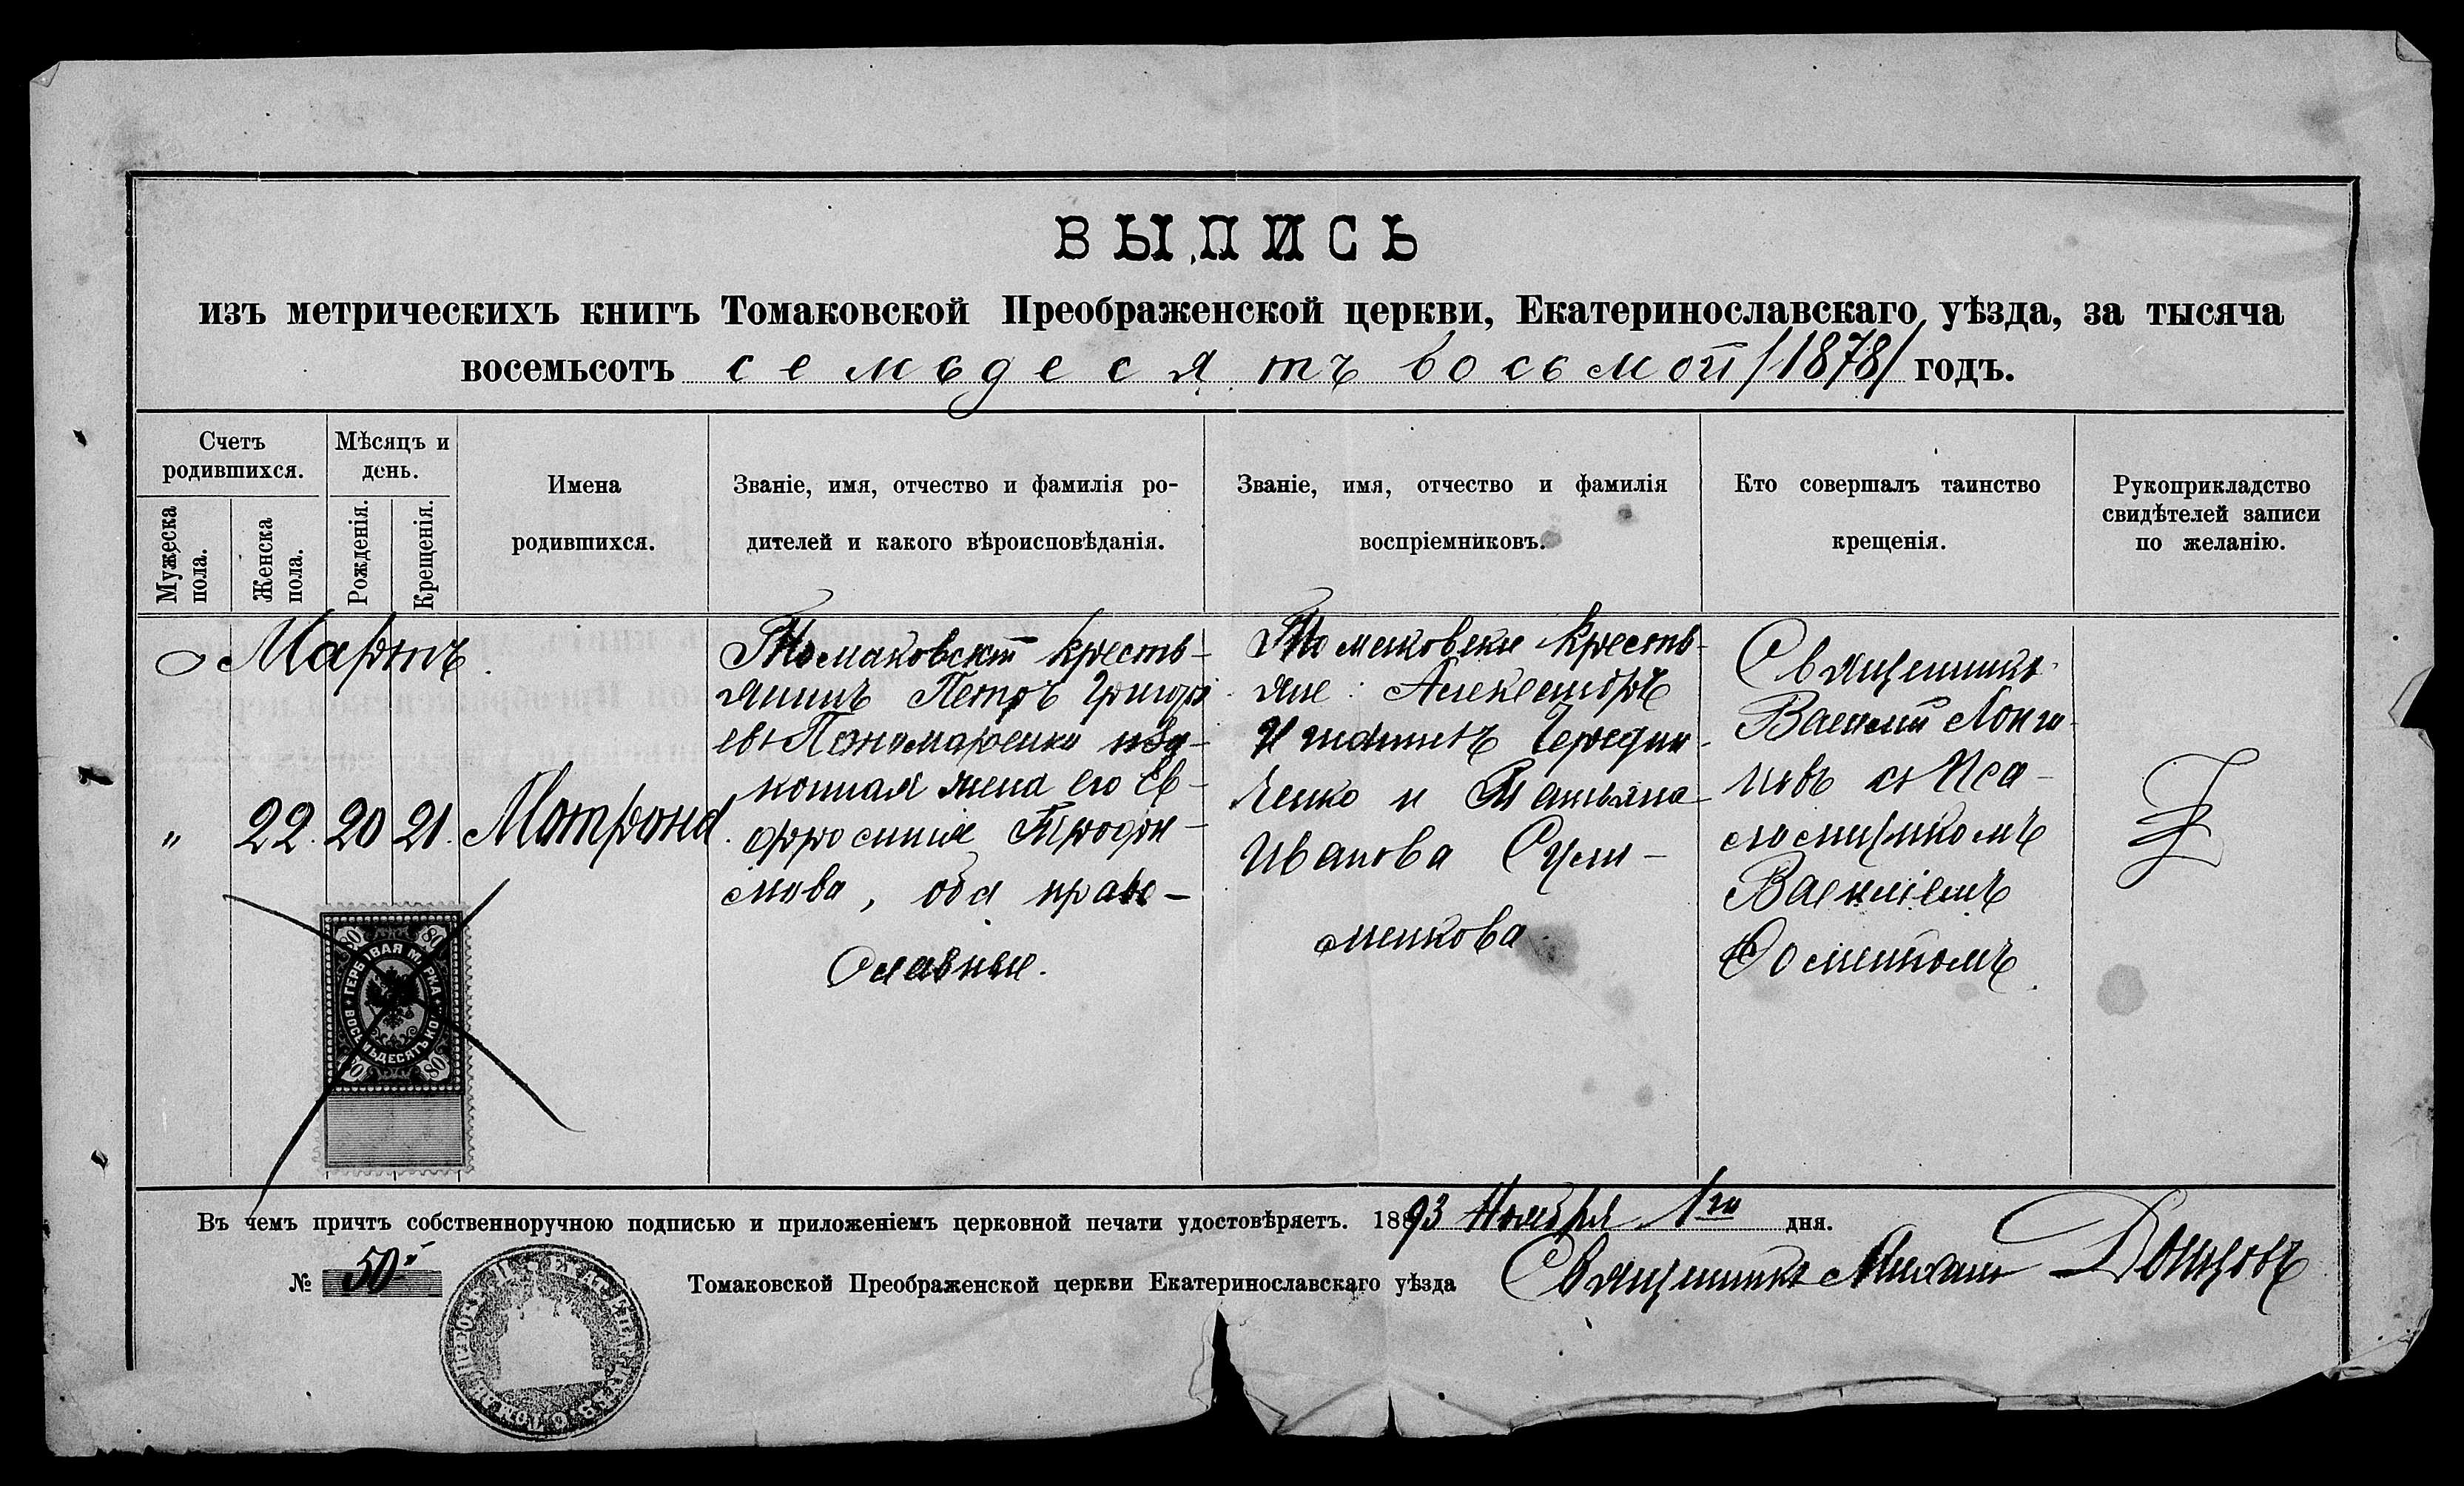 ВЫПИСЬ
изъ метрическихъ книгъ Томаковской Преображенской церкви, Екатеринославскаго уѣзда, за тысяча
восемьсотъ семьдесятъ восьмой /1878/ годъ.
Счетъ
родившихся.
Мужеска
пола.
Женска
пола.
Мѣсяцъ и
день.
Рожденія.
Крещенія.
Имена
родившихся.
Званіе, имя, отчество и фамилія ро-
дителей и какого вѣроисповѣданія.
Званіе, имя, отчество и фамилія
воспріемниковъ.
Кто совершалъ таинство
крещенія.
Рукоприкладство
свидѣтелей записи
по желанію.
Мартъ
" 22. 20 21. Матрона.
Томаковскій кресть-
янинъ Петръ Григорі
евъ Пономаренко
конная жена его Ев-
фросинія Трофи-
мова, оба право-
славные.
Томаковски кресть-
яне: Александръ
Чередни-
ченко и Татьяна
Иванова Сули-
менкова
Священникъ
Василій Логи-
новъ съ Пса-
ломщикомъ
Василіемъ
Фоменкомъ.
80 80
ГЕРБОВАЯ МАРКА
ВОСЕМЬДЕСЯТЪ КОП
80 80
Въ чемъ причтъ собственноручною подписью и приложеніемъ церковной печати удостовѣряетъ. 1893 Ноября 1го дня.
№ 50
Томаковской Преображенской церкви Екатеринославскаго уѣзда Священникъ Михаилъ Донцовъ